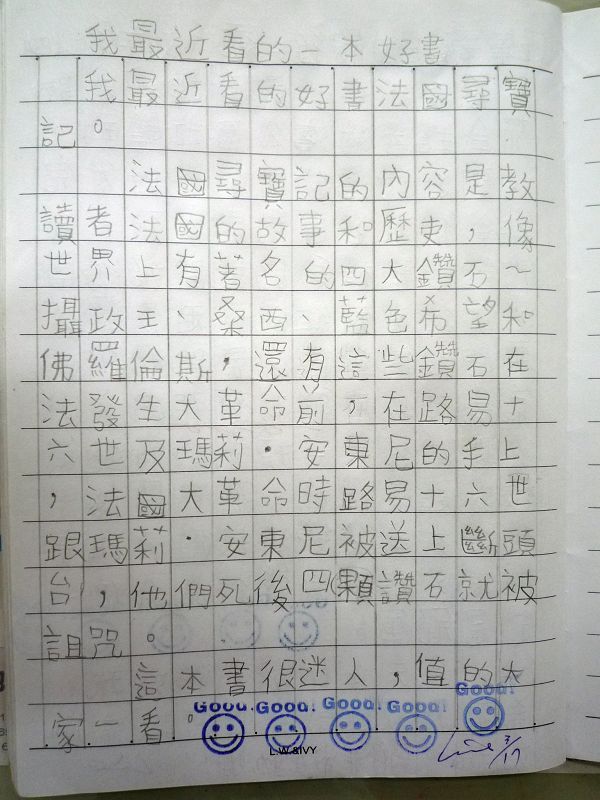 我最近看的一本好書
我最近看的好書法國尋寶
記。
法國尋寶記的內容是教
讀者法國的故事和歷史，像
世界上有著名的四大鑽石~
攝政王、桑西、藍色希望和
佛羅倫斯，還有這些鑽石在
法發生大革命前，在路易十
六世及瑪莉·安東尼的手上
，法國大革命時路易十六世
跟瑪莉·安東尼被送上斷頭
台，他們死後四顆讚石就被
詛咒。
這本書很迷人，值的大
家一看。
Good! Good! Good! Good! Good!
L.W.SIVY
3/17